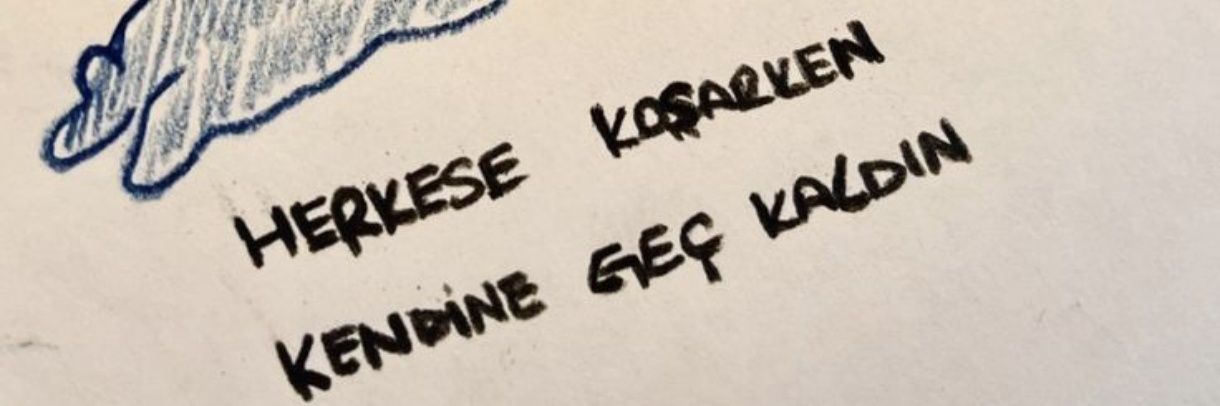 HERKESE KOŞARKEN
KENDİNE GEÇ KALDIN